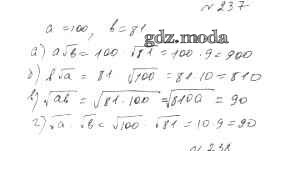 № 237
a = 100, b = 81
gdz.moda
а) a√b = 100 · √81 = 100 · 9 = 900
б) b√a = 81 √100 = 81 · 10 = 810
в) √ab = √81·100 = √8100 = 90
г) √a · √b = √100 · √81 = 10 · 9 = 90
№ 238